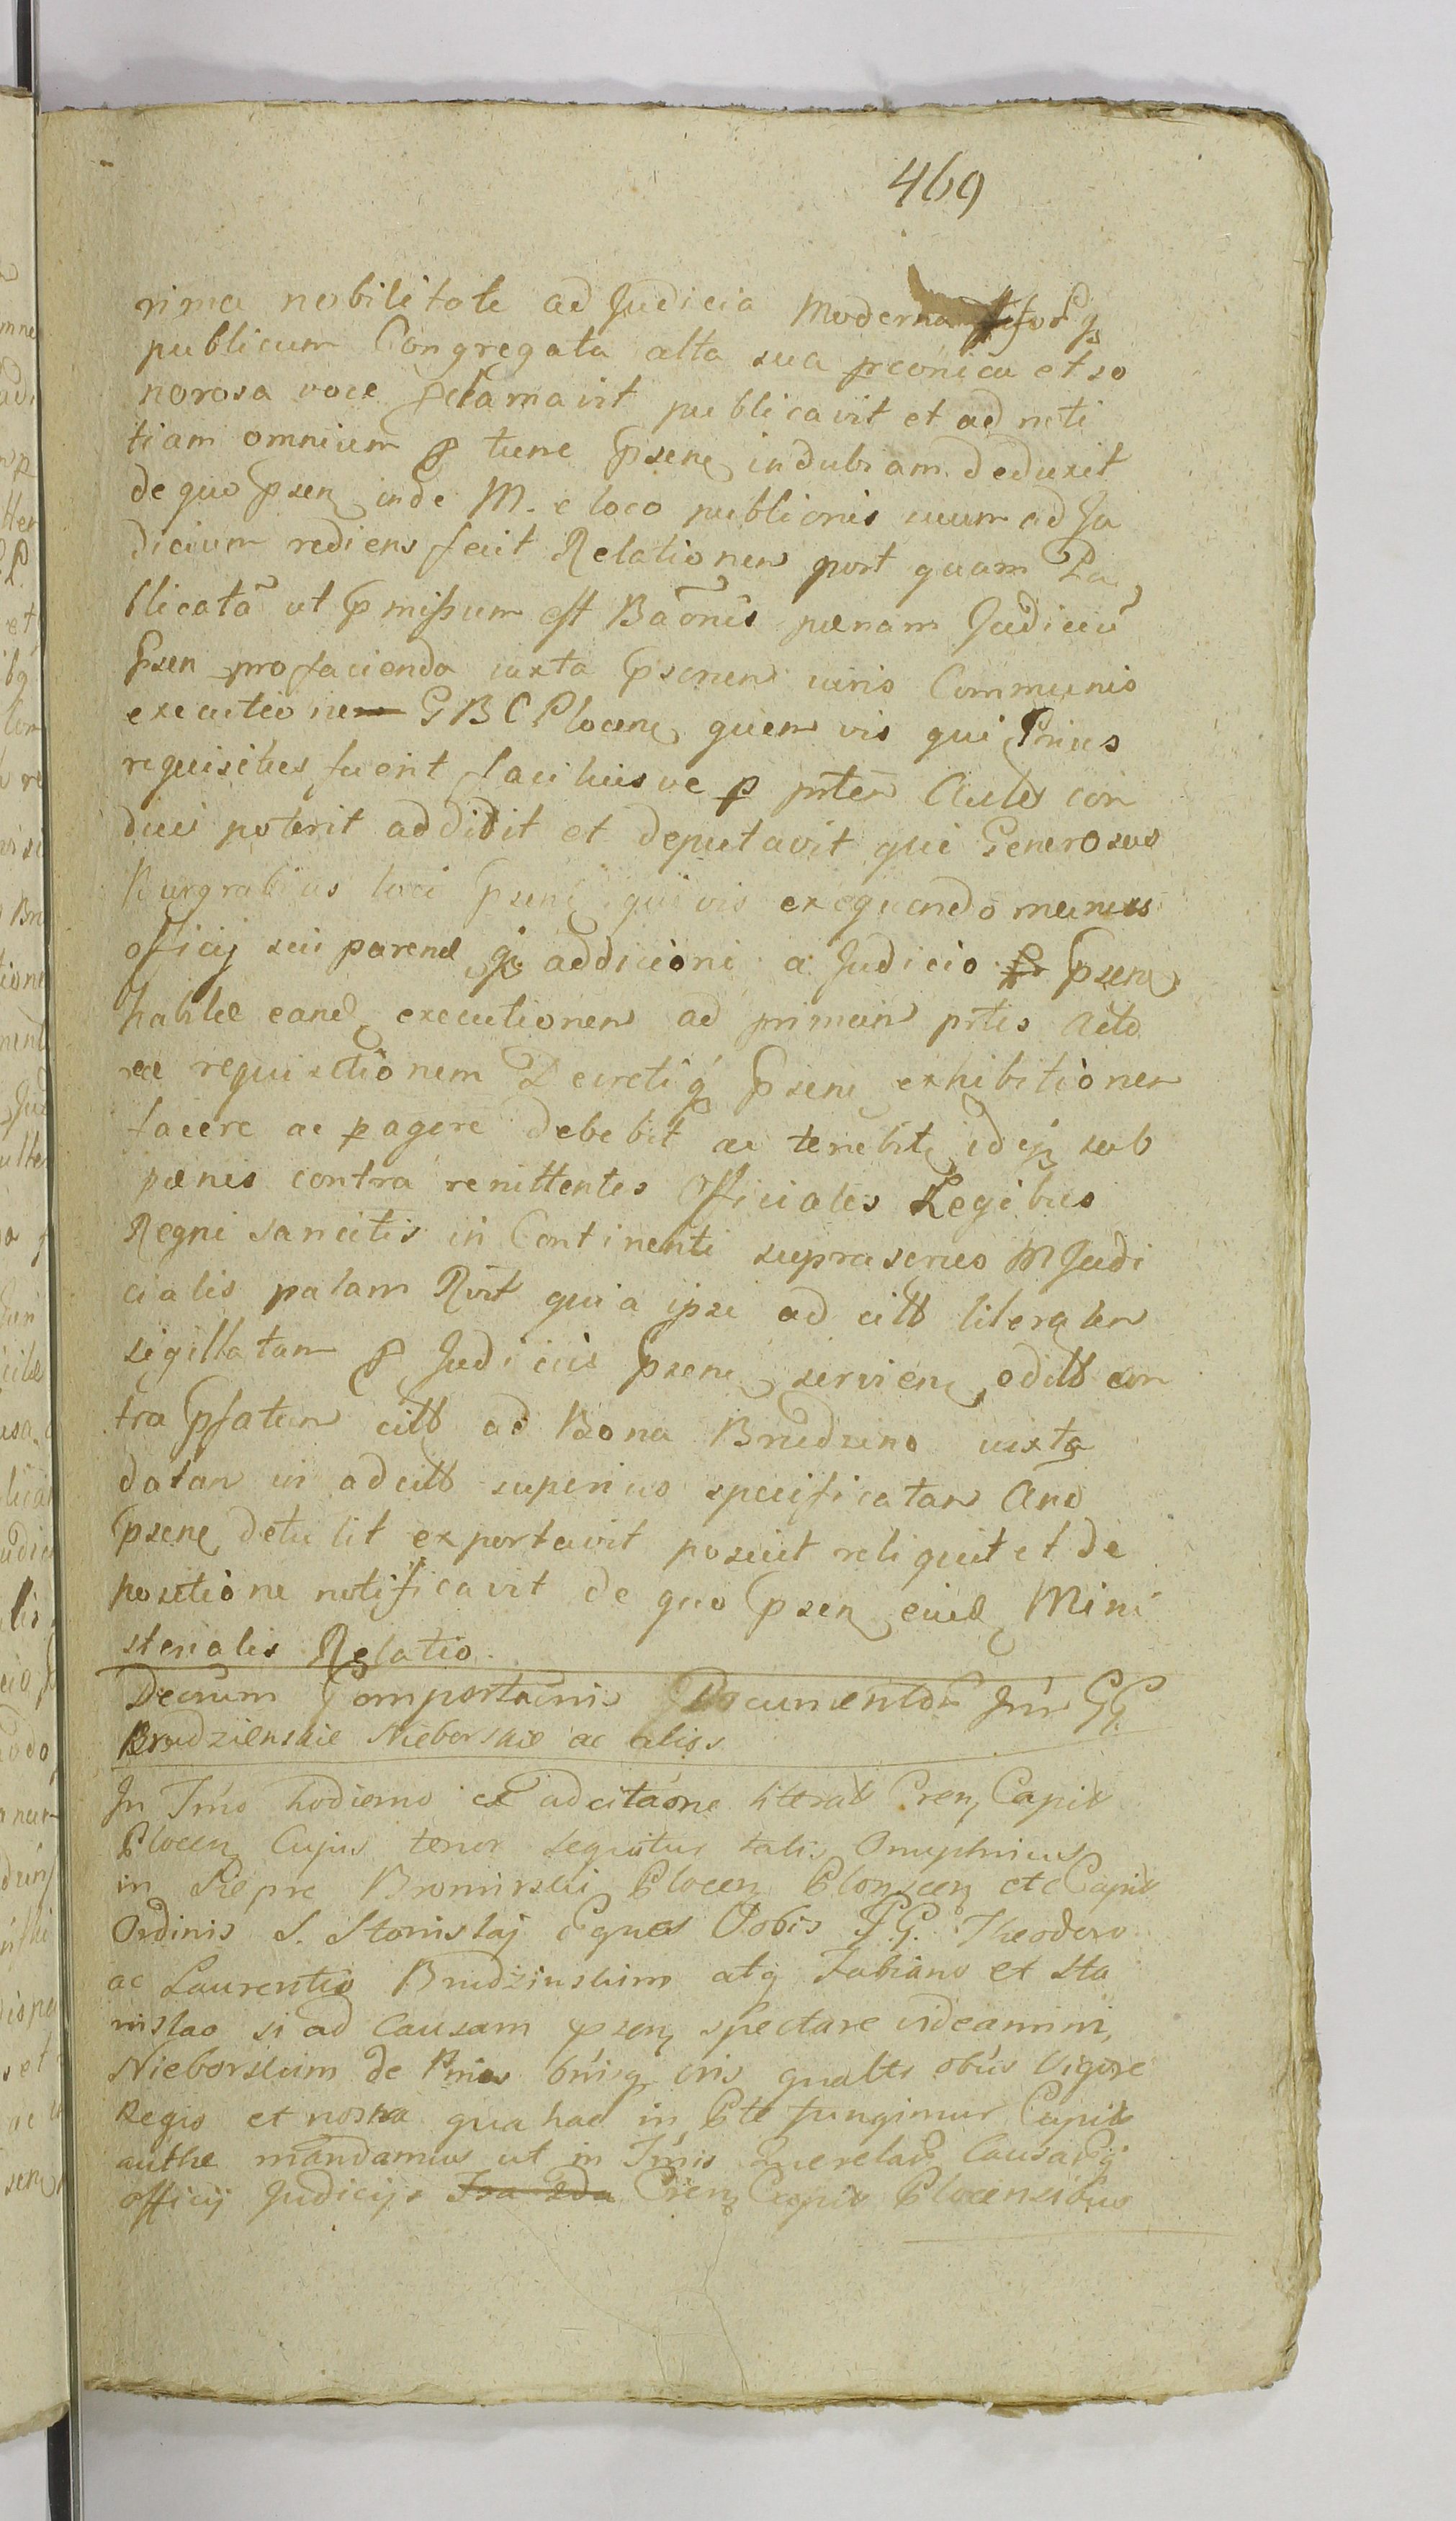 469
rima nobilitate ad Judicia Moderna
publicum Congregata alta sua preonica et so
norosa voce pclamavit publicavit et ad noti
tiam omnium p tunc psenc indubiam deduxit
de quo psen inde M. e loco publionis suum ad Ju
dicium rediens fecit Relationem post quam Pu
blicatã ut pmissum est Baõnis pænam Judiciũ
psen pro facienda iuxta psenem iuris Communis
executione G B C Plocen quem vis qui Prius
requisitus fuerit faciliusve p prtem Actor con
duci poterit addidit et deputavit qui Generosus
Burgrabius loci psenc quivis exequendo munus
officij sui parend q addicioni a Judicio psenc
habitæ eand executionem ad primam prtis Acto
ræ requisitionem Decretiq psenc exhibitionem
facere ac pagere debebit ac tenebit idq sub
pænis contra renittentes Officiales Legibus
Regni sancitis in Continenti supra scrus M Judi
cialis palam Rvit quia ipse ad citt literatem
sigillatam p Judiciis psenc servienc editt con
tra psatum citt ad Bona Brudzino iuxta
datam in adcitt superius specificatam And
psenc detulit exportavit posuit reliquit et de
positione notificavit de quo psen eiusd Mini
sterialis Relatio.
Decrum Comportaonis Documentor Inr GG
Brudzienskie Nieborskie ac alios
In Trno hodierno ex adcitaõne literat Cren Capit
Plocen Cujus tenor sequitur talis Onuphrius
in Siepre Bromirski Plocen Plonscen etc Capit
Ordinis S. Stanislaj Eques Vobis GG. Theodoro
ac Laurentio Brudzinskim atq Fabiano et Sta
nislao si ad Causam psen spectare videamini
Nieborskim de Bnis bnisq vris gnaltr obus Vigore
Regio et nostra qua hac in Pte fungimur Capit
authe mandamus ut in Trnis Querelar Causarq
officij Judicijs Cren Capit Plocensibus